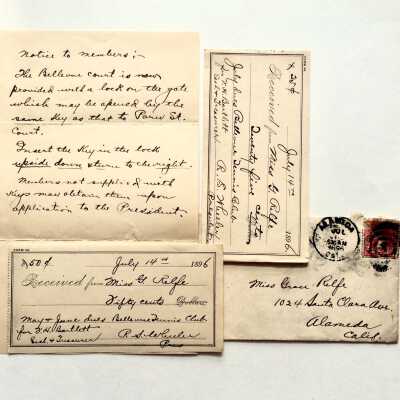 Notice to members:-
The Bellevue court is now
provided with a lock on the gate
which may be opened by the
same key as that to Paru St.
Court.
Insert the key in the lock
upside down & turn to the right.
Members not supplied with
keys may obtain them upon
application to the President.
50¢ July 14th 1896
Received from Miss G. Relfe
Fifty cents Dollars
May & June dues Bellevue Tennis Club
for F.H. Bartlett R.S. Wheeler
Sec'l & Treasurer Pres
25¢ July 14th 1896
Received from Miss G. Relfe
Twenty five cents
July dues Bellevue Tennis Club
for F.H. Bartlett R.S. Wheeler
Sec'l & Treasurer President
ALAMEDA
JUL
CAL.
Miss Grace Relfe
1024 Santa Clara Ave.
Alameda
Calif.